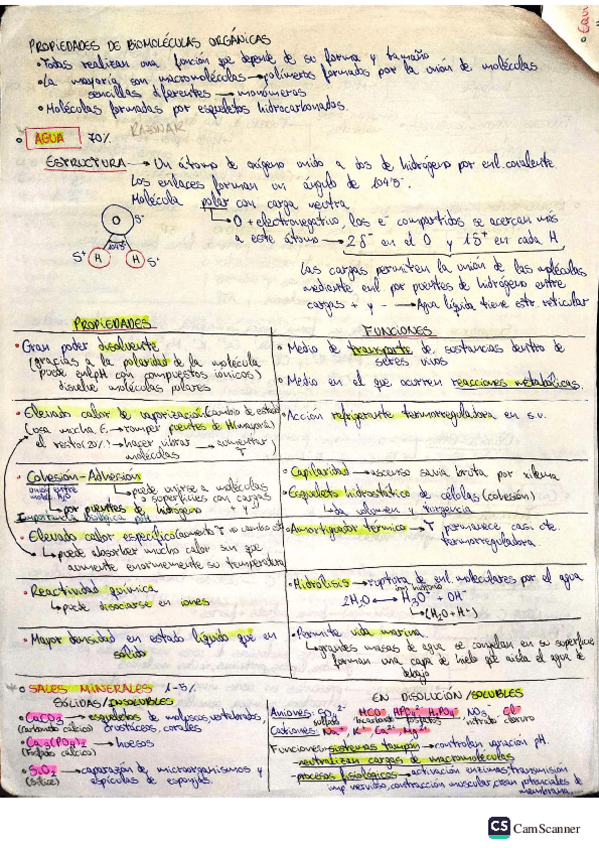 PROPIEDADES DE BIOMOLÉCULAS ORGÁNICAS
• Todas realizan una función que depende de su forma y tamaño
• La mayoría son macromoléculas → polímeros formados por la unión de moléculas
sencillas diferentes → monómeros
• Moléculas formadas por esqueletos hidrocarbonados.
RAZONAR
• AGUA 70%
ESTRUCTURA → Un átomo de oxígeno unido a dos de hidrógeno por enl. covalente
Los enlaces forman un ángulo de 104'5º
Molécula polar con carga neutra
O + electronegativo, los e⁻ compartidos se acercan más
a este átomo → 2δ⁻ en el O y 1δ⁺ en cada H
O δ⁻
104'5
δ⁺ H H δ⁺
Las cargas permiten la unión de las moléculas
mediante enl por puentes de hidrógeno entre
cargas + y - → Agua líquida tiene estr. reticular
PROPIEDADES
FUNCIONES
• Gran poder disolvente
(gracias a la polaridad de la molécula
puede enl pH con compuestos iónicos)
disuelve moléculas polares
• Medio de transporte de sustancias dentro de
seres vivos
• Medio en el que ocurren reacciones metabólicas.
• Elevado calor de vaporización (cambio de estado)
(usa mucha E. → romper puentes de H (mayoría)
el resto (20%) → hacer vibrar → aumentar T)
moléculas
• Acción refrigerante termorreguladora en s.v.
• Cohesión-Adhesión
unión entre moléc H₂O
puede unirse a moléculas
o superficies con cargas
+ y -
por puentes de hidrógeno
Importancia biológica pH
• Capilaridad → ascenso savia bruta por xilema
• Esqueleto hidrostático de células (cohesión)
↳ da volumen y turgencia
• Elevado calor específico (aumenta T no cambia est)
↳ puede absorber mucho calor sin que
aumente enormemente su temperatura
• Amortiguador térmico → T permanece casi cte.
termorreguladora
• Reactividad química
↳ puede disociarse en iones
• Hidrólisis → ruptura de enl moleculares por el agua
ion hidronio
2H₂O → H₃O⁺ + OH⁻
↳ (H₂O + H⁺)
• Mayor densidad en estado líquido que en
sólido
• Permite vida marina.
↳ grandes masas de agua se congelan en su superficie
forman una capa de hielo que aísla el agua de
debajo
* • SALES MINERALES 1-5%
SÓLIDAS/INSOLUBLES
• CaCO₃ → esqueletos de moluscos, vertebrados,
(carbonato cálcico) crustáceos, corales
• Ca₃(PO₄)₂ → huesos
(fosfato cálcico)
• SiO₂ → caparazón de microorganismos y
(sílice) espículas de esponjas.
EN DISOLUCIÓN/SOLUBLES
Aniones: SO₄²⁻ HCO₃⁻ HPO₄²⁻ H₂PO₄⁻ NO₃⁻ Cl⁻
sulfato bicarbonato fosfatos nitrato cloruro
Cationes: Na⁺ K⁺ Ca²⁺ Mg²⁺
Funciones: -sistemas tampón → controlan variación pH.
-neutralizan cargas de macromoléculas
-procesos fisiológicos → activación enzimas, transmisión
imp nervioso, contracción muscular, crean potenciales de
membrana,
CS CamScanner